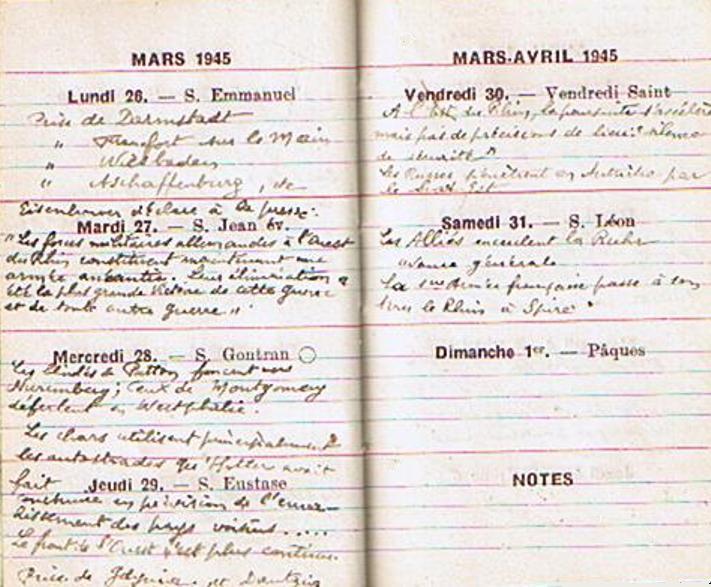 MARS 1945
Lundi 26. — S. Emmanuel
Prise de Darmstadt
" Francfort sur le Main
" Wiesbaden
" Aschaffenburg, etc
Eisenhower déclare à la presse:
Mardi 27. — S. Jean év.
"Les forces militaires allemandes à l'ouest
du Rhin constituent maintenant une
armée anéantie. Leur élimination a
été la plus grande victoire de cette guerre
et de toute autre guerre".
Mercredi 28. — S. Gontran
Les blindés de Patton foncent vers
Nuremberg; ceux de Montgomery
déferlent en Westphalie.
Les chars utilisent principalement
les autostrades qu'Hitler avait
fait
Jeudi 29. — S. Eustase
construire en prévision de l'enva-
hissement des pays voisins.....
Le front de l'Ouest n'est plus continu.
Prise de et Dantzig
MARS-AVRIL 1945
Vendredi 30. — Vendredi Saint
A l'Est du Rhin, la poursuite s'accélère
mais pas de précisions de lieu: silence
de sécurité"
Les Russes pénètrent en Autriche par
le Sud Est
Samedi 31. — S. Léon
Les Alliés encerclent la Ruhr
avance générale
La 1ère armée française passe à son
tour le Rhin à Spire.
Dimanche 1er. — Pâques
NOTES